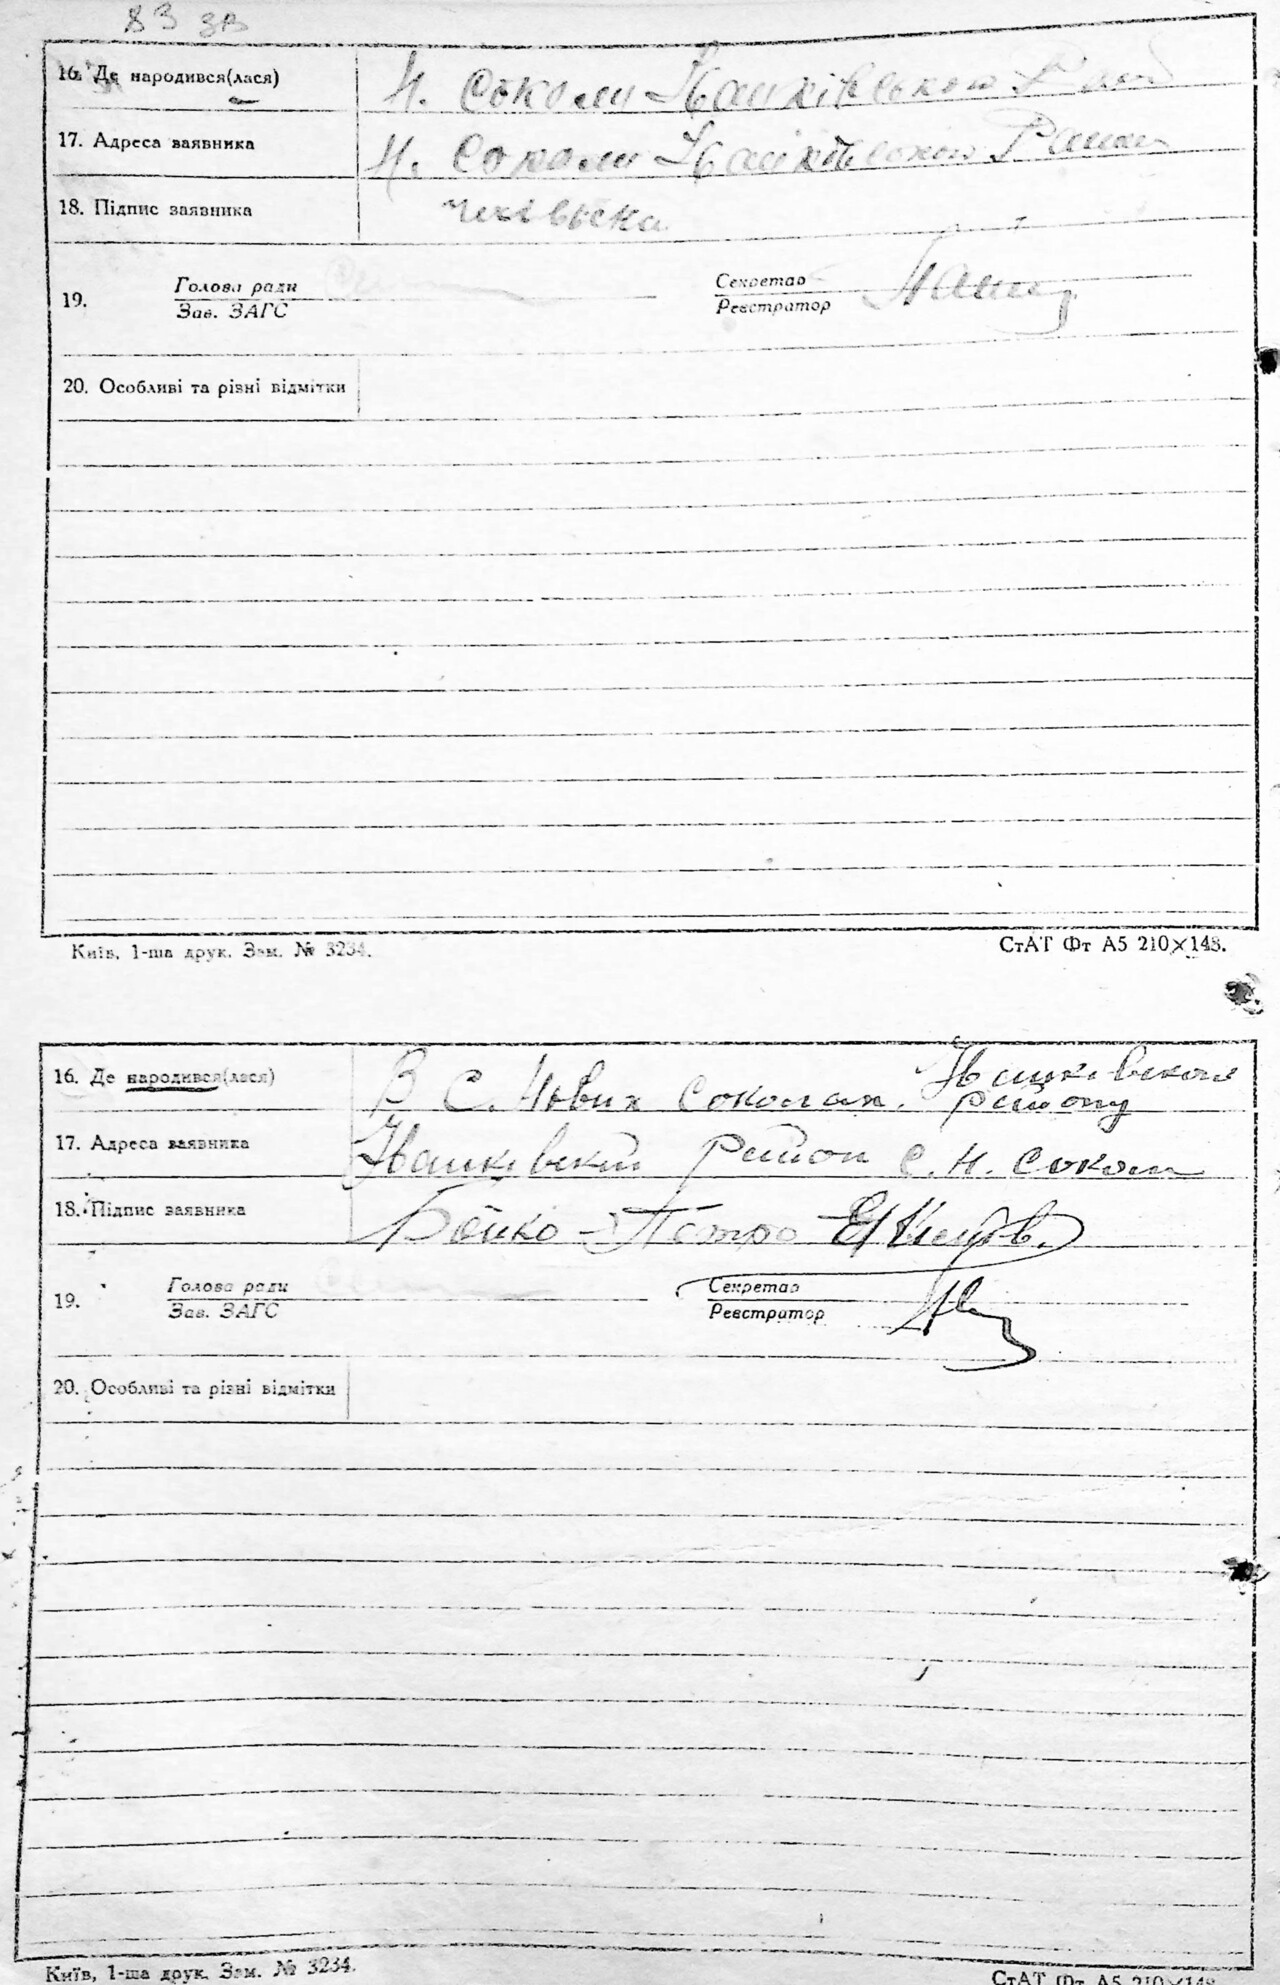 83 зв
16. Де народився(лася) Н. Соколи Іванківського Рай
17. Адреса заявника Н. Соколи Іванківського Району
18. Підпис заявника
19. Голова ради
Зав. ЗАГС
Секретар
Реєстратор
20. Особливі та різні відмітки
Київ, 1-ша друк. Зам. № 3234.
СтАТ Фт А5 210×148.
16. Де народився(лася) В С. Нових Соколах. Іванківського
району
17. Адреса заявника Іванківський район с. Н. Соколи
18. Підпис заявника Бойко Петро
19. Голова ради
Зав. ЗАГС
Секретар
Реєстратор
20. Особливі та різні відмітки
Київ, 1-ша друк. Зам. № 3234.
СтАТ Фт А5 210×148